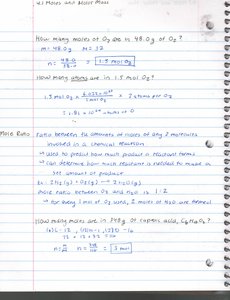 4.1 Moles and Molar Mass
How many moles of O₂ are in 48.0g of O₂?
m = 48.0g M = 32
n = 48.0/32.0 = 1.5 mol O₂
How many atoms are in 1.5 mol O₂?
1.5 mol O₂ x 6.022 x 10²³ / 1 mol O₂ x 2 atoms per O₂
= 1.81 x 10²⁴ atoms of O
Mole Ratio Ratio between the amounts of moles of any 2 molecules
involved in a chemical reaction.
used to predict how much product a reactant forms
can determine how much reactant is needed to make a
set amount of product.
Ex: 2H₂(g) + O₂(g) → 2H₂O(g)
mole ratio between O₂ and H₂O is 1:2
for every 1 mol of O₂ used, 2 moles of H₂O are formed
How many moles are in 348g of caproic acid, C₆H₁₂O₂?
72 + 12 + 32 = 116
n = m/M n = 348/116 = 3 mol